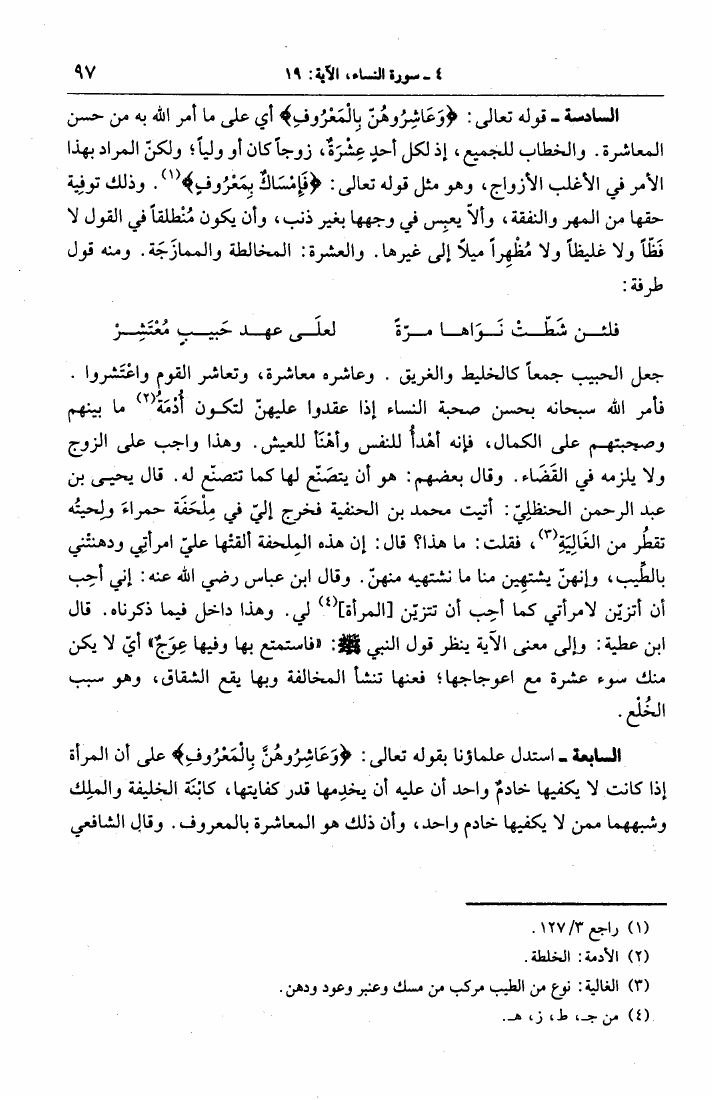 ٤ ـ سورة النساء، الآية: ١٩
٩٧
السادسة ـ قوله تعالى: ﴿وَعَاشِرُوهُنّ بِالْمَعْرُوفِ﴾ أي على ما أمر الله به من حسن
المعاشرة. والخطاب للجميع، إذ لكل أحدٍ عِشْرَةٌ، زوجاً كان أو ولياً؛ ولكنّ المراد بهذا
الأمر في الأغلب الأزواج، وهو مثل قوله تعالى: ﴿فَإِمْسَاكٌ بِمَعْرُوفٍ﴾(١). وذلك توفِية
حقها من المهر والنفقة، وألاّ يعبِس في وجهها بغير ذنب، وأن يكون مُنْطلقاً في القول لا
فَظّاً ولا غليظاً ولا مُظْهِراً ميلاً إلى غيرها. والعشرة: المخالطة والممازَجَة. ومنه قول
طرفة:
فلئـن شَطَّـتْ نَـوَاهـا مـرّةً لعلَـى عهـد حَبيـبٍ مُعْتَشِـرْ
جعل الحبيب جمعاً كالخليط والغريق . وعاشره معاشرة، وتعاشر القوم واعْتَشروا .
فأمر الله سبحانه بحسن صحبة النساء إذا عقدوا عليهنّ لتكـون أُدْمَةُ(٢) ما بينهم
وصحبتهـم على الكمال، فإنه أهْدأُ للنفس وأهْنَأ للعيش. وهذا واجب على الزوج
ولا يلزمه في القَضَاء. وقال بعضهم: هو أن يتصَنّع لها كما تتصنّع له. قال يحيـى بن
عبد الرحمن الحنظلِيّ: أتيت محمد بن الحنفية فخرج إليّ في مِلْحَفَة حمراءَ ولِحيتُه
تقطُر من الغَالِيَةِ(٣)، فقلت: ما هذا؟ قال: إن هذه المِلحفة ألقتْها عليّ امرأتِي ودهنتْني
بالطِّيب، وإنهنّ يشتهِين منا ما نشتهيه منهنّ. وقال ابن عباس رضي الله عنه: إني أحِب
أن أتزيّن لامرأتي كما أحِب أن تتزيّن [المرأة](٤) لي. وهذا داخل فيما ذكرناه. قال
ابن عطية: وإلى معنى الآية ينظر قول النبي ﷺ: «فاستمتع بها وفيها عِوَجٌ» أيّ لا يكن
منك سوء عشرة مع اعوجاجها؛ فعنها تنشأ المخالفة وبها يقع الشقاق، وهو سبب
الخُلْع.
السابعة ـ استدل علماؤنا بقوله تعالى: ﴿وَعَاشِرُوهُنَّ بِالْمَعْرُوفِ﴾ على أن المرأة
إذا كانت لا يكفيها خادمٌ واحد أن عليه أن يخدِمها قدر كفايتها، كابْنَة الخليفة والملِك
وشبههما ممن لا يكفيها خادم واحد، وأن ذلك هو المعاشرة بالمعروف. وقال الشافعي
(١) راجع ١٢٧/٣.
(٢) الأدمة: الخلطة.
(٣) الغالية: نوع من الطيب مركب من مسك وعنبر وعود ودهن.
(٤) من جـ، ط، ز، هـ.